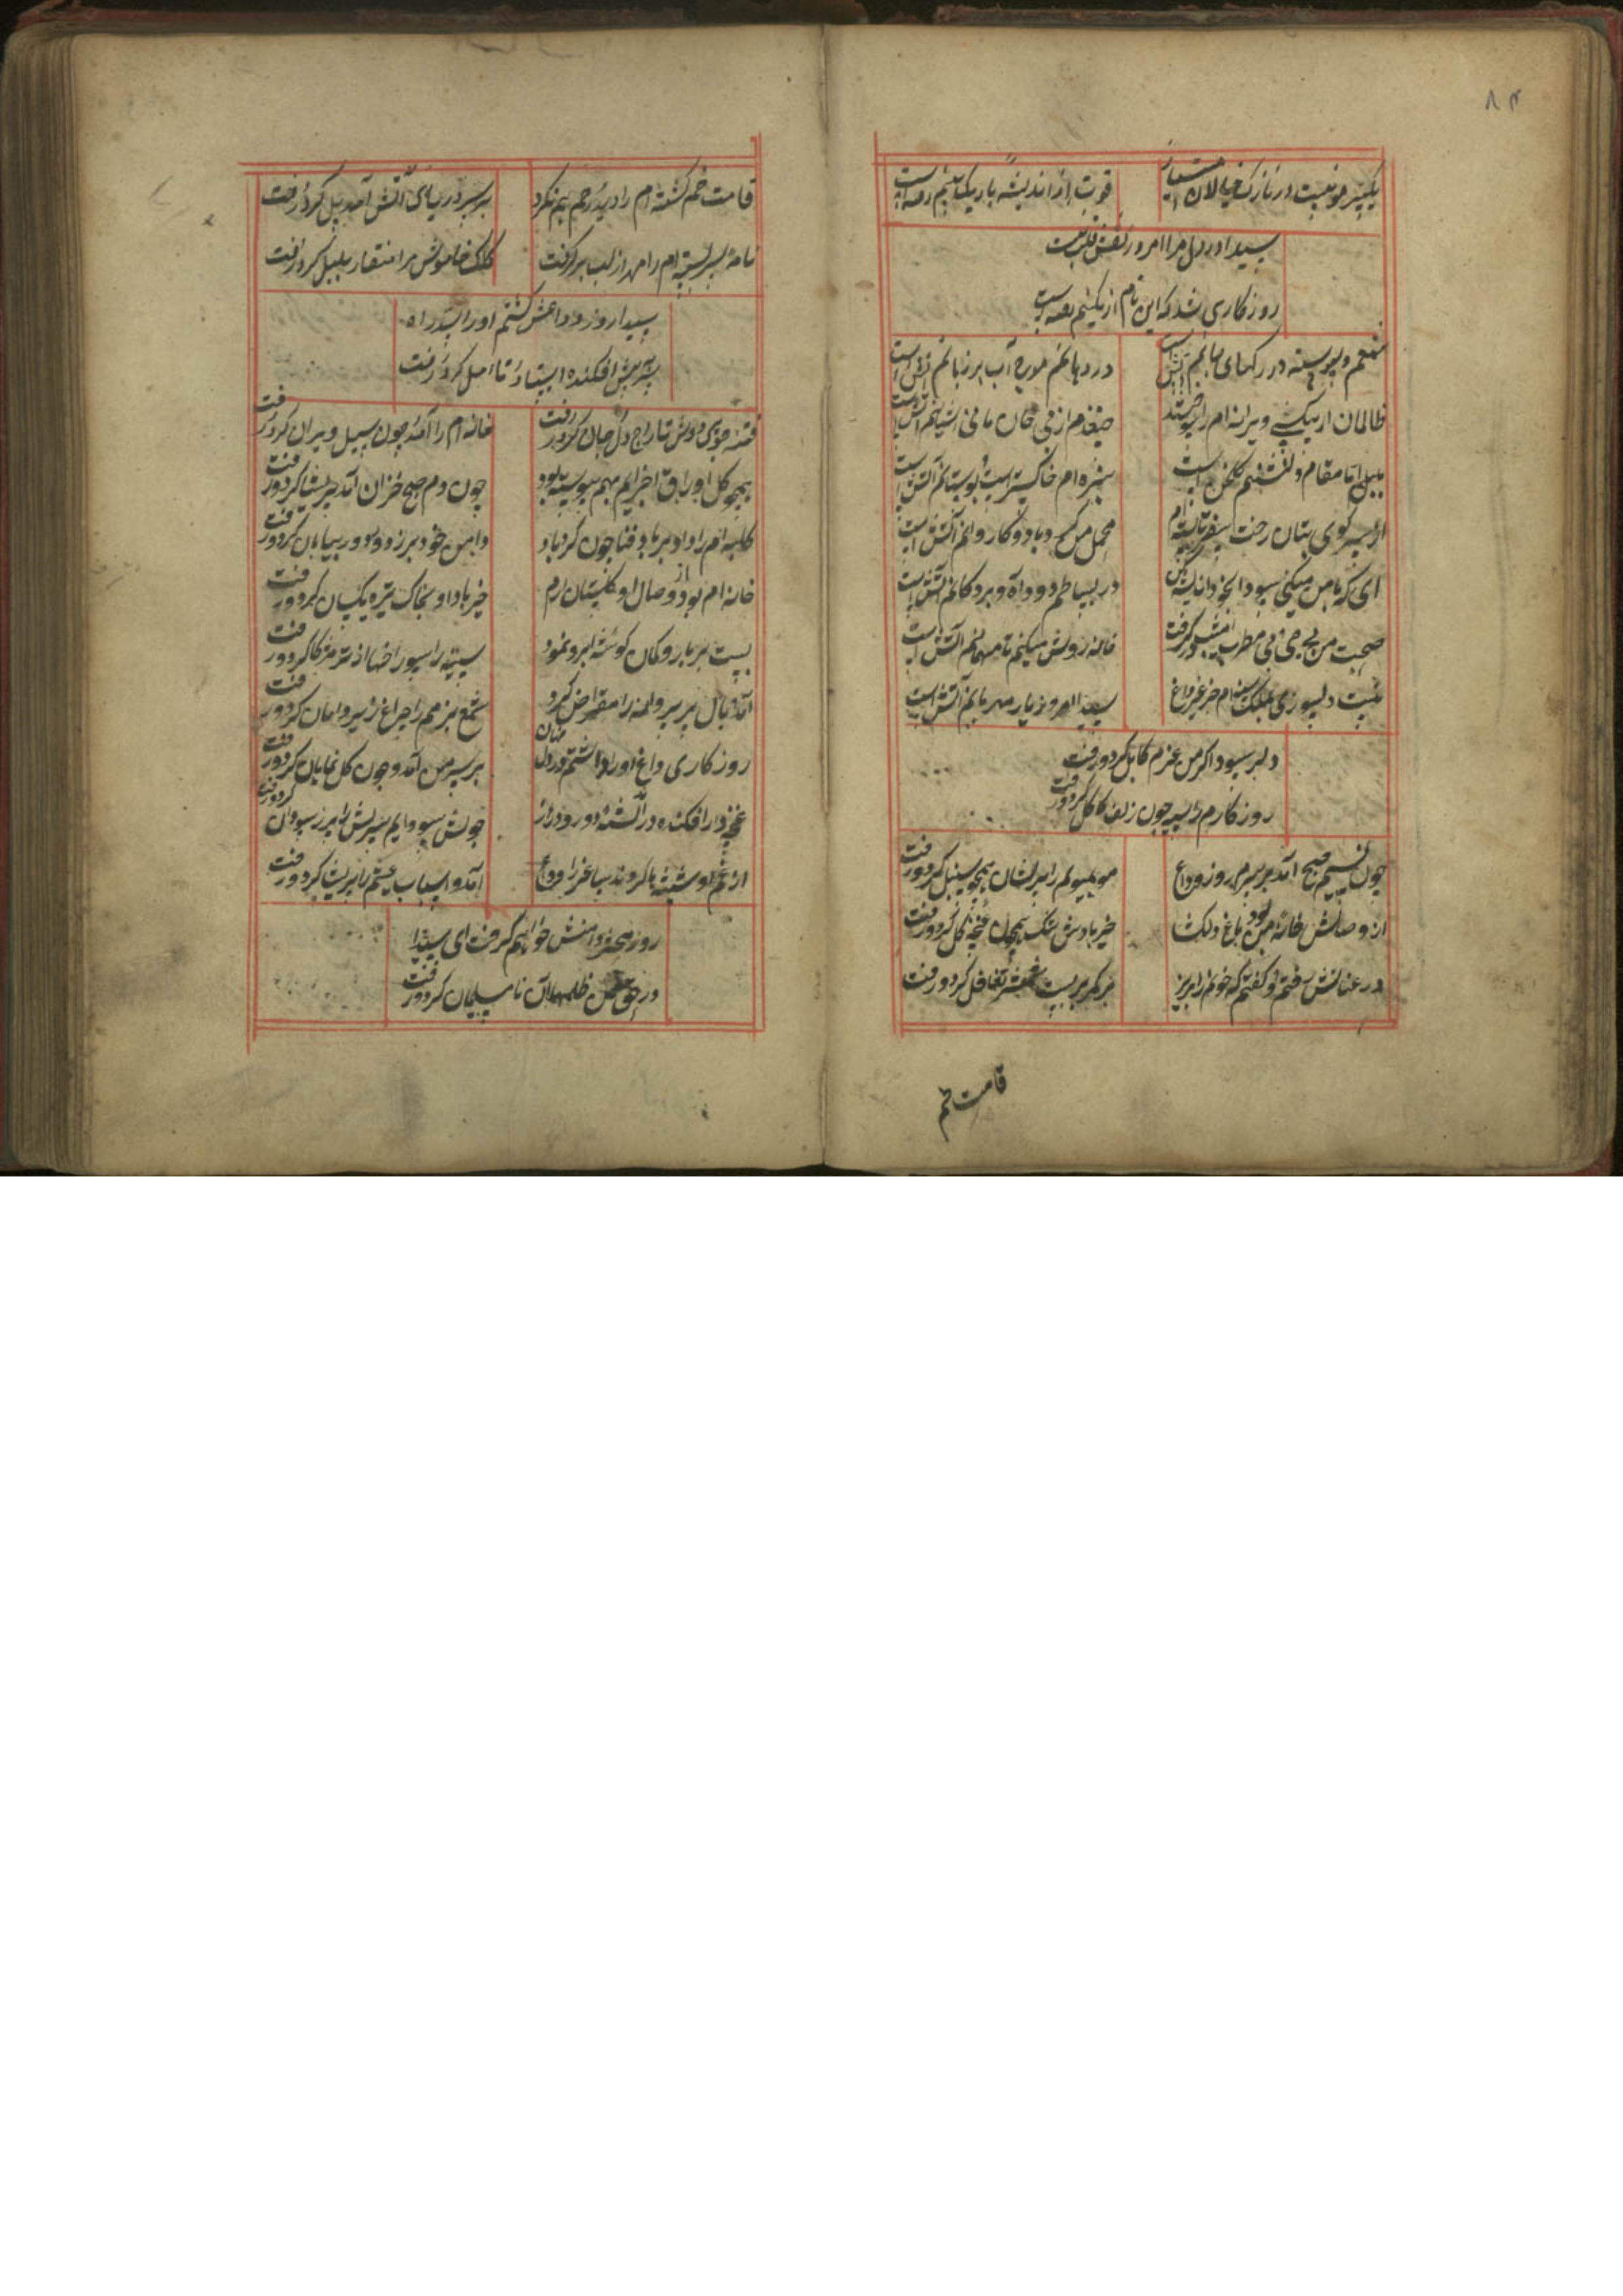 ۸۴
یکسر مو نیست در نازک خیالان امتیاز
قوت از اندیشه باریک بینم رفته است
سیدا در دل مرا امروز نقش فکر نیست
روزکاری شد که این نام از نکینم رفته است
شمعم و پیوسته در رکهای جانم آتش است
در دهانم موج آب بر زبانم آتش است
ظالمان از بیکسی ویرانه ام را سوختند
جغدم از بی خان مانی آشیانم آتش است
بلبل اما مقام و کلشنم کلخن است
سبزه ام خاکستر است و بوستانم آتش است
از سر کوی بتان رخت سفر تا بسته ام
محمل من کرد باد و کاروانم آتش است
ای که با من میکنی سودا بخود اندیشه کن
در بساطم دود آه و بر دکانم آتش است
صحبت من بی می و بی مطرب امشب در کرفت
خانه روشن میکنم تا میهمانم آتش است
نیست دلسوزی بملک سینه ام جز غیر داغ
سیدا امروز یار مهربانم آتش است
دلبر سوداکر من عزم کابل کرد و رفت
روزکارم را سیه چون زلف کاکل کرد و رفت
چون نسیم صبح آمد بر سرم روز وداع
مو بمویم را پریشان همچو سنبل کرد و رفت
از وصالش خانه من بود باغ دلکشا
خیربادش تنک همچون غنچه کل کرد و رفت
در عنانش رفتم و کفتم که خونم را بریز
بر کمر بربست شمشیر تغافل کرد و رفت
قامت خم
قامت خم کشته ام را دید رحم هم نکرد
بر سر دریای آتش آمد پل کرد و رفت
نامه سربسته ام را مهر از لب برکرفت
کلک خاموش مرا منقار بلبل کرد و رفت
سیدا روز وداعش کشتم او را سد راه
سر به پیش افکنده استاد و تامل کرد و رفت
فتنه جوی دوش تاراج دل و جان کرد و رفت
خانه ام را آمد چون سیل ویران کرد و رفت
همچو کل اوراق اجزایم بهم پیوسته بود
چون دم صبح خزان آمد پریشان کرد و رفت
کلبه ام را داد بر باد فنا چون کردباد
دامن خود بر زد و رو در بیابان کرد و رفت
خانه ام بود از وصال او کلستان ارم
خیرباد او بخاک تیره یکسان کرد و رفت
بست بر بازو کمان کوشه ابرو نمود
سینه را سوراخها از تیر مژکان کرد و رفت
آمد بال پر پروانه را مقراض کرد
شمع بزمم را چراغ زیر دامان کرد و رفت
روزکاری داغ او را داشتم در دل نهان
بر سر من آمد و چون کل نمایان کرد و رفت
آمد و اسباب عیشم را پریشان کرد و رفت
روز محشر دامنش خواهم کرفت ای سیدا
در حق من ظلمها آن نامسلمان کرد و رفت